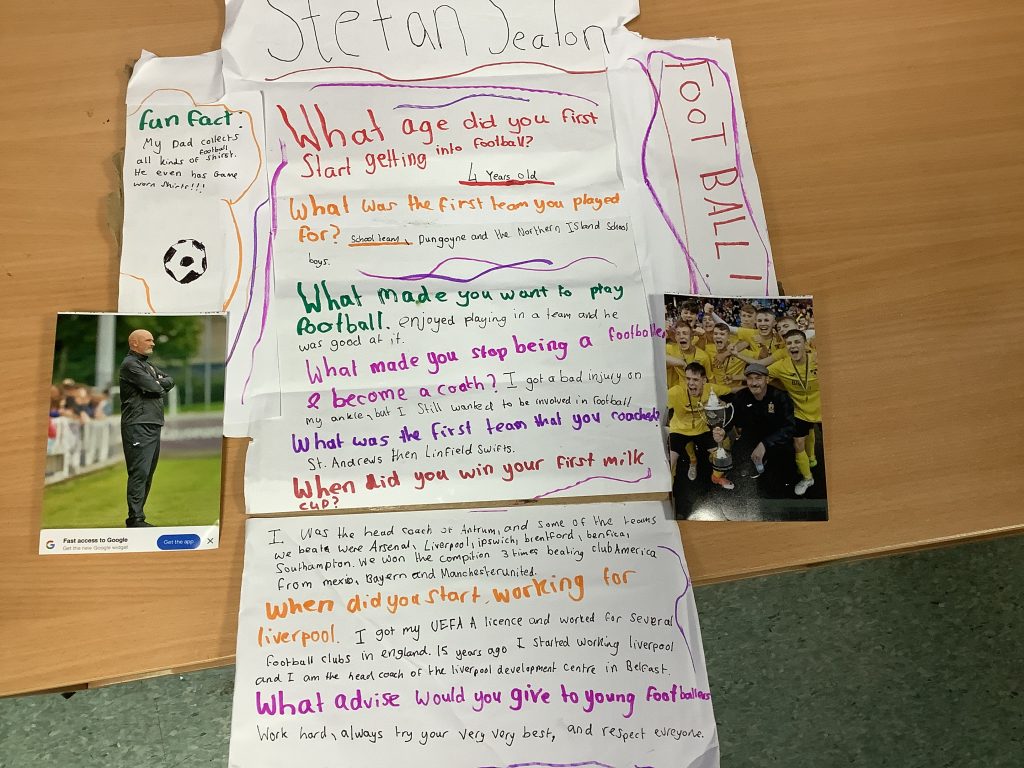 Stefan Seaton
FOOTBALL!
fun fact:
My Dad collects
football
all kinds of shirst.
He even has Game
worn shirts!!!
What age did you first
Start getting into football?
4 Years old
What was the first team you played
for? School team, Dungoyne and the Northern ISland School
boys.
What made you want to play
football. enjoyed playing in a team and he
was good at it.
What made you stop being a footballer
& become a coach? I got a bad injury on
my ankle, but I Still wanted to be involved in football
What was the first team that you coached?
St. Andrews then Linfield Swifts.
When did you win your first milk
cup?
I was the head coach of Antrum, and some of the teams
we beat were Arsenal, Liverpool, ipswich, brentford, benfica,
Southampton. We won the compition 3 times beating club America
from mexico, Bayern and Manchester united.
When did you start working for
liverpool. I got my UEFA A licence and worked for several
football clubs in england. 15 years ago I started working liverpool
and I am the head coach of the liverpool development centre in Belfast.
What advise would you give to young footballers
Work hard, always try your very very best, and respect evreyone.
G Fast access to Google
Get the new Google widget
Get the app